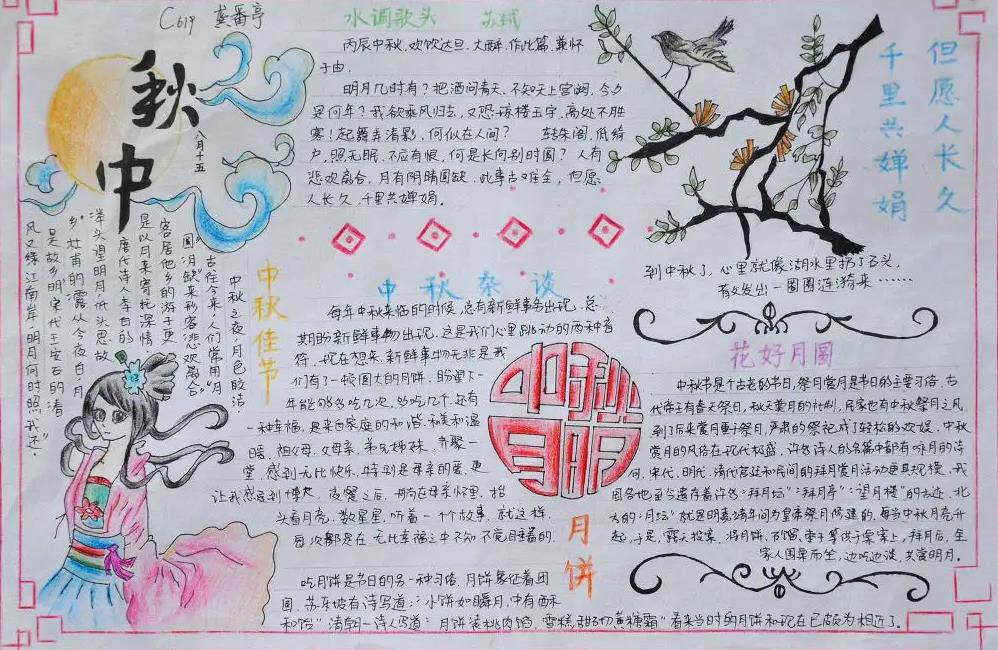 C619 龚番亭
水调歌头 苏轼
丙辰中秋,欢饮达旦,大醉,作此篇,兼怀
子由.
明月几时有?把酒问青天,不知天上宫阙,今夕
是何年?我欲乘风归去,又恐琼楼玉宇,高处不胜
寒!起舞弄清影,何似在人间? 转朱阁,低绮
户,照无眠.不应有恨,何是长向别时圆?人有
悲欢离合,月有阴晴圆缺,此事古难全,但愿
人长久,千里共婵娟.
但愿人长久
千里共婵娟
中秋
八月十五
中秋佳节
中秋之夜,月色皎洁
古往今来,人们常用"月
圆""月缺"来形容"悲欢离合"
客居他乡的游子更
是以月来寄托深情
唐代诗人李白的
举头望明月,低头思故
乡"杜甫的"露从今夜白,月
是故乡明"宋代王安石的"春
风又绿江南岸,明月何时照我还"
中秋杂谈
每年中秋来临的时候,总有新鲜事务出现,总
期盼新鲜事物出现,这是我们心里跳动的两种音
符.现在想来,新鲜事物无非是我
们有了一顿圆大的月饼,盼望下一
年能够多吃几次,多吃几个.还有
一种幸福,是来自家庭的和谐、和美和温
暖,祖父母、父母亲、弟兄姊妹、齐聚一
堂,感到无比快乐.特别是母亲的爱,更
让我感觉到博大,夜餐之后,
头看月亮,数星星,听着一个故事,就这样,
每次都是在无比幸福之中不知不觉睡着的.
到中秋了,心里就像湖水里扔了石头,
散发出一圈圈涟漪来……
花好月圆
中秋节是个古老的节日,祭月赏月是节日的主要习俗.古
代帝王有春天祭日,秋天祭月的社制,民家也有中秋祭月之风,
到了后来赏月重于祭月,严肃的祭祀成了轻松的欢娱.中秋
赏月的风俗在现代极盛,许多诗人的名篇中都有咏月的诗
句,宋代、明代、清代宫廷和民间的拜月赏月活动更具规模.我
国各地至今遗存着许多"拜月坛""拜月亭""望月楼"的古迹.北
京的"月坛"就是明嘉靖年间为皇家祭月修建的.每当中秋月亮升
起,于是,露天设案,将月饼、石榴、枣子等供于桌案上,拜月后,全
家人围桌而坐,边吃边谈,共赏明月.
中秋月明
月饼
吃月饼是节日的另一种习俗,月饼象征着团
圆,苏东坡有诗写道:"小饼如嚼月,中有酥
和饴"清朝一诗人写道:"月饼装桃肉馅,雪糕甜砌蔗糖霜"看来当时的月饼和现在已颇为相近了.